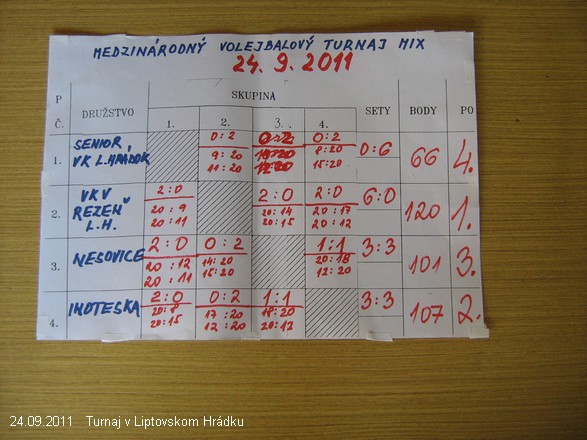 MEDZINÁRODNÝ VOLEJBALOVÝ TURNAJ MIX
24. 9. 2011
P
Č. DRUŽSTVO SKUPINA SETY BODY PO
1. 2. 3. 4.
1. SENIOR, VK L.HRÁDOK 0:2 0:2 0:2 0:6 66 4.
9:20 8:20
11:20 15:20
2. VKV REZEŇ L.H. 2:0 2:0 2:0 6:0 120 1.
20:9 20:14 20:17
20:11 20:15 20:12
3. NESOVICE 2:0 0:2 1:1 3:3 101 3.
20:12 14:20 20:18
20:11 15:20 12:20
4. IMOTESKA 2:0 0:2 1:1 3:3 107 2.
20:8 17:20 18:20
20:15 12:20 20:12
24.09.2011 Turnaj v Liptovskom Hrádku